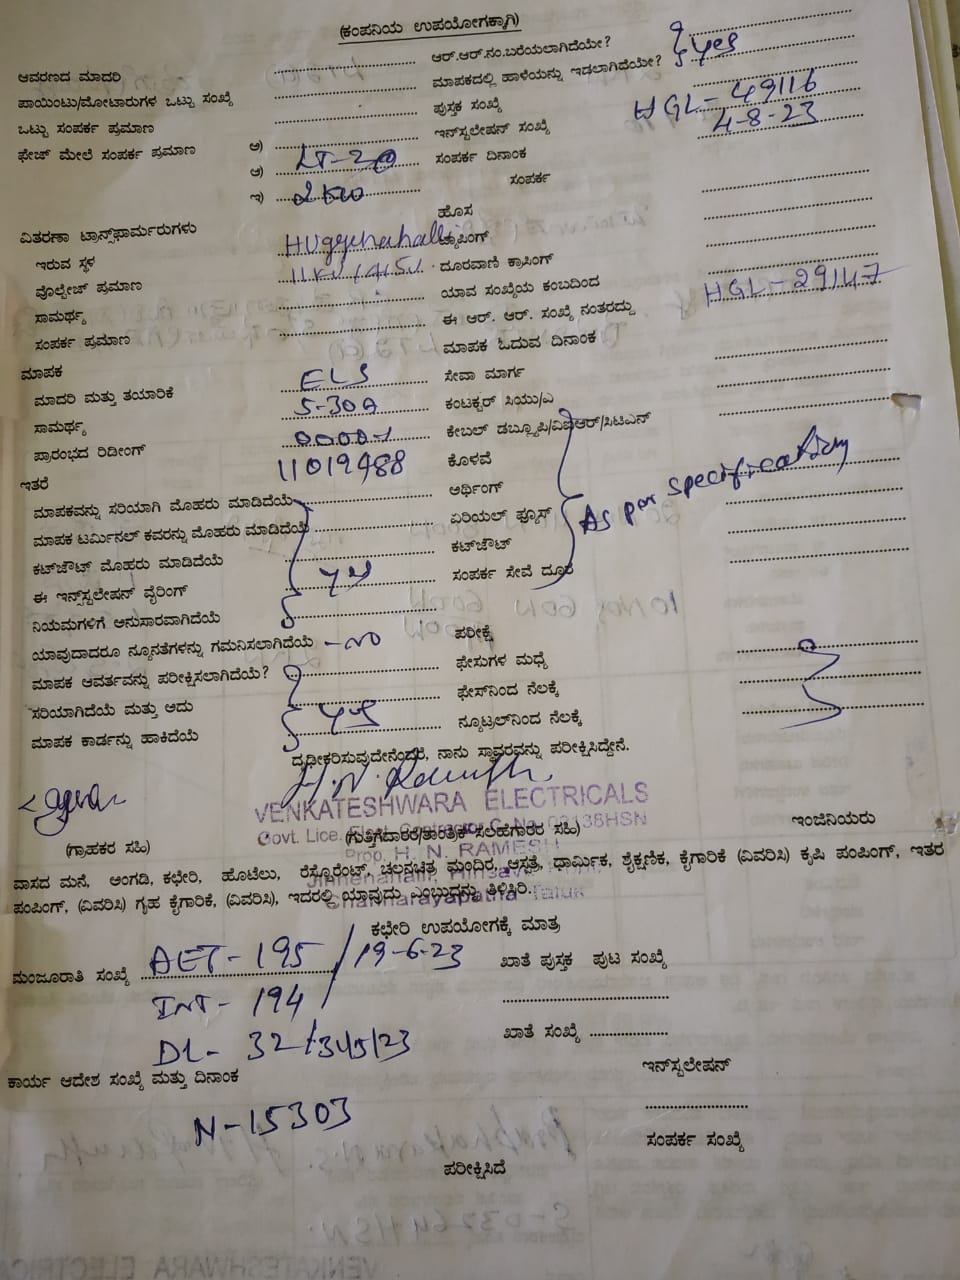 (ಕಂಪನಿಯ ಉಪಯೋಗಕ್ಕಾಗಿ)
ಆವರಣದ ಮಾದರಿ
ಆರ್.ಆರ್.ನಂ.ಬರೆಯಲಾಗಿದೆಯೇ?
ಪಾಯಿಂಟು/ಮೋಟಾರುಗಳ ಒಟ್ಟು ಸಂಖ್ಯೆ
ಮಾಪಕದಲ್ಲಿ ಹಾಳೆಯನ್ನು ಇಡಲಾಗಿದೆಯೇ? yes
ಒಟ್ಟು ಸಂಪರ್ಕ ಪ್ರಮಾಣ
ಪುಸ್ತಕ ಸಂಖ್ಯೆ
ಫೇಜ್ ಮೇಲೆ ಸಂಪರ್ಕ ಪ್ರಮಾಣ ಅ)
ಇನ್‌ಸ್ಟಲೇಷನ್ ಸಂಖ್ಯೆ HGL-49116
ಆ)
ಸಂಪರ್ಕ ದಿನಾಂಕ 4-8-23
ಇ) 2kw
ಸಂಪರ್ಕ
ವಿತರಣಾ ಟ್ರಾನ್ಸ್‌ಫಾರ್ಮರುಗಳು
ಹೊಸ
ಇರುವ ಸ್ಥಳ Huggenahalli
ಟ್ಯಾಪಿಂಗ್
ವೋಲ್ಟೇಜ್ ಪ್ರಮಾಣ 11KV/415V
ದೂರವಾಣಿ ಕ್ರಾಸಿಂಗ್
ಸಾಮರ್ಥ್ಯ
ಯಾವ ಸಂಖ್ಯೆಯ ಕಂಬದಿಂದ
ಸಂಪರ್ಕ ಪ್ರಮಾಣ
ಈ ಆರ್. ಆರ್. ಸಂಖ್ಯೆ ನಂತರದ್ದು HGL-29147
ಮಾಪಕ
ಮಾಪಕ ಓದುವ ದಿನಾಂಕ
ಮಾದರಿ ಮತ್ತು ತಯಾರಿಕೆ ELS
ಸೇವಾ ಮಾರ್ಗ
ಸಾಮರ್ಥ್ಯ 5-30A
ಕಂಟಕ್ಟರ್ ಸಿಯು/ಎ
ಪ್ರಾರಂಭದ ರಿಡಿಂಗ್
ಕೇಬಲ್ ಡಬ್ಲ್ಯೂಪಿ/ವಿಐಆರ್/ಸಿಟಿಎನ್
ಇತರೆ 11019488
ಕೊಳವೆ
ಮಾಪಕವನ್ನು ಸರಿಯಾಗಿ ಮೊಹರು ಮಾಡಿದೆಯೆ
ಅರ್ಥಿಂಗ್
As per specification
ಮಾಪಕ ಟರ್ಮಿನಲ್ ಕವರನ್ನು ಮೊಹರು ಮಾಡಿದೆಯೆ
ಏರಿಯಲ್ ಫ್ಯೂಸ್
ಕಟ್‌ಔಟ್ ಮೊಹರು ಮಾಡಿದೆಯೆ
ಕಟ್‌ಔಟ್
ಈ ಇನ್ಸ್‌ಸ್ಟಲೇಷನ್ ವೈರಿಂಗ್ yes
ಸಂಪರ್ಕ ಸೇವೆ ದೂರ
ನಿಯಮಗಳಿಗೆ ಅನುಸಾರವಾಗಿದೆಯೆ
ಯಾವುದಾದರೂ ನ್ಯೂನತೆಗಳನ್ನು ಗಮನಿಸಲಾಗಿದೆಯೆ - NO
ಪರೀಕ್ಷೆ
ಮಾಪಕ ಆವರ್ತವನ್ನು ಪರೀಕ್ಷಿಸಲಾಗಿದೆಯೆ?
ಫೇಸುಗಳ ಮಧ್ಯೆ
ಸರಿಯಾಗಿದೆಯೆ ಮತ್ತು ಅದು yes
ಫೇಸ್‌ನಿಂದ ನೆಲಕ್ಕೆ
ಮಾಪಕ ಕಾರ್ಡನ್ನು ಹಾಕಿದೆಯೆ
ನ್ಯೂಟ್ರಲ್‌ನಿಂದ ನೆಲಕ್ಕೆ
ದೃಢೀಕರಿಸುವುದೇನೆಂದರೆ, ನಾನು ಸ್ಥಾವರವನ್ನು ಪರೀಕ್ಷಿಸಿದ್ದೇನೆ.
VENKATESHWARA ELECTRICALS
Govt. Lice. Elect. Contractor C. No. 03138HSN
(ಗ್ರಾಹಕರ ಸಹಿ)
(ಗುತ್ತಿಗೆದಾರರ/ತಾಂತ್ರಿಕ ಸಲಹೆಗಾರರ ಸಹಿ)
ಇಂಜಿನಿಯರು
Prop. H. N. RAMESH
ವಾಸದ ಮನೆ, ಅಂಗಡಿ, ಕಛೇರಿ, ಹೊಟೆಲು, ರೆಸ್ಟೊರೆಂಟ್, ಚಲನಚಿತ್ರ ಮಂದಿರ, ಆಸ್ಪತ್ರೆ, ಧಾರ್ಮಿಕ, ಶೈಕ್ಷಣಿಕ, ಕೈಗಾರಿಕೆ (ವಿವರಿಸಿ) ಕೃಷಿ ಪಂಪಿಂಗ್, ಇತರ
ಪಂಪಿಂಗ್, (ವಿವರಿಸಿ) ಗೃಹ ಕೈಗಾರಿಕೆ, (ವಿವರಿಸಿ), ಇದರಲ್ಲಿ ಯಾವುದು ಎಂಬುದನ್ನು ತಿಳಿಸಿರಿ.
Channarayapatna Taluk
ಕಛೇರಿ ಉಪಯೋಗಕ್ಕೆ ಮಾತ್ರ
ಮಂಜೂರಾತಿ ಸಂಖ್ಯೆ AET-195 / 19-6-23
ಖಾತೆ ಪುಸ್ತಕ ಪುಟ ಸಂಖ್ಯೆ
INT- 194
ಖಾತೆ ಸಂಖ್ಯೆ
DL- 32/3/5/23
ಕಾರ್ಯ ಆದೇಶ ಸಂಖ್ಯೆ ಮತ್ತು ದಿನಾಂಕ
ಇನ್‌ಸ್ಟಲೇಷನ್
N-15303
ಸಂಪರ್ಕ ಸಂಖ್ಯೆ
ಪರೀಕ್ಷಿಸಿದೆ